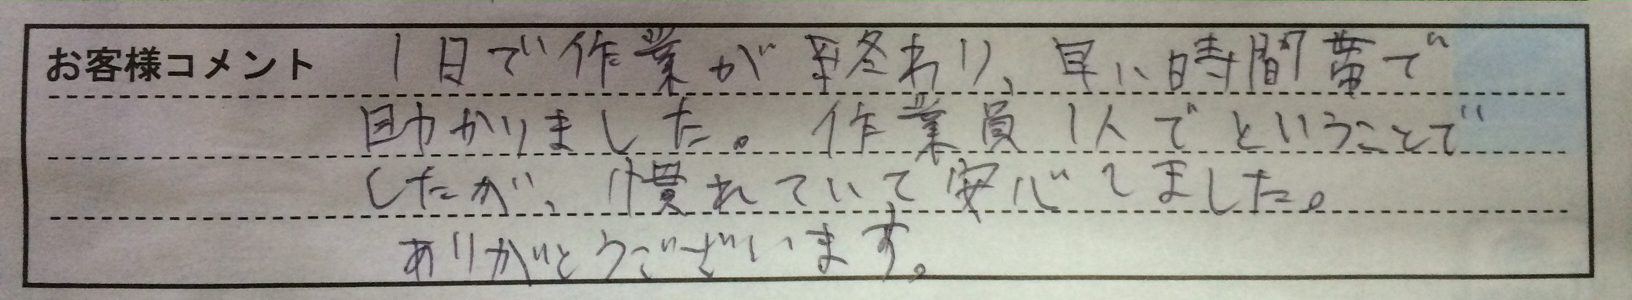 お客様コメント 1日で作業が終わり、早い時間帯で
助かりました。作業員1人でということで
したが、慣れていて安心しました。
ありがとうございます。